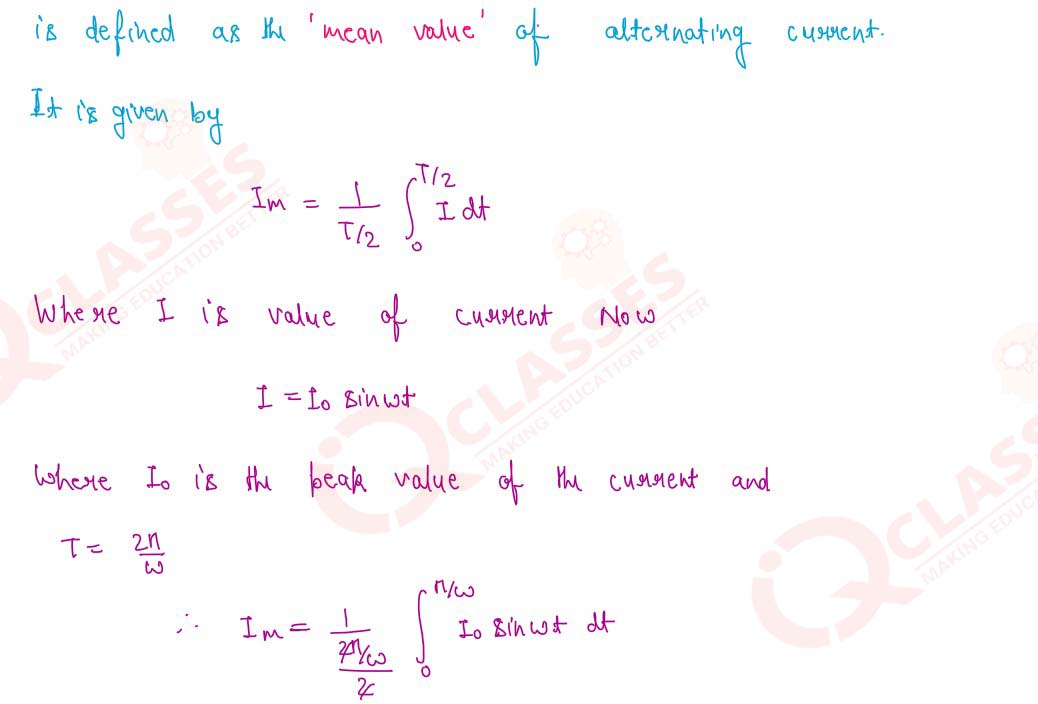 is defined as the 'mean value' of alternating current.
It is given by
Im = 1/(T/2) ∫₀^(T/2) I dt
Where I is value of current Now
I = I₀ sinωt
Where I₀ is the peak value of the current and
T = 2π/ω
∴ Im = 1/((2π/ω)/2) ∫₀^(π/ω) I₀ sinωt dt
IQ CLASSES
MAKING EDUCATION BETTER
IQ CLASSES
MAKING EDUCATION BETTER
IQ CLASSES
MAKING EDUCA